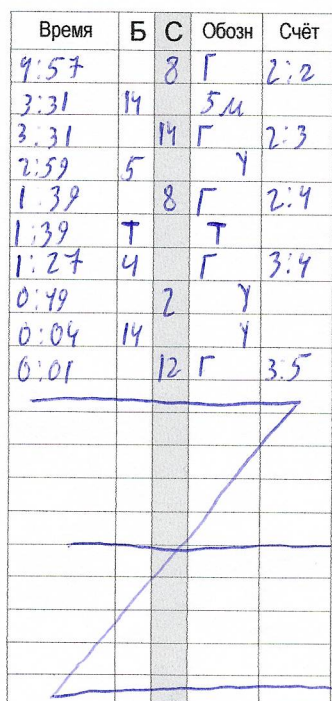 Время Б С Обозн Счёт
9:57 8 Г 2:2
3:31 14 5м
3:31 14 Г 2:3
2:59 5 У
1:39 8 Г 2:4
1:39 Т Т
1:27 4 Г 3:4
0:49 2 У
0:04 14 У
0:01 12 Г 3:5